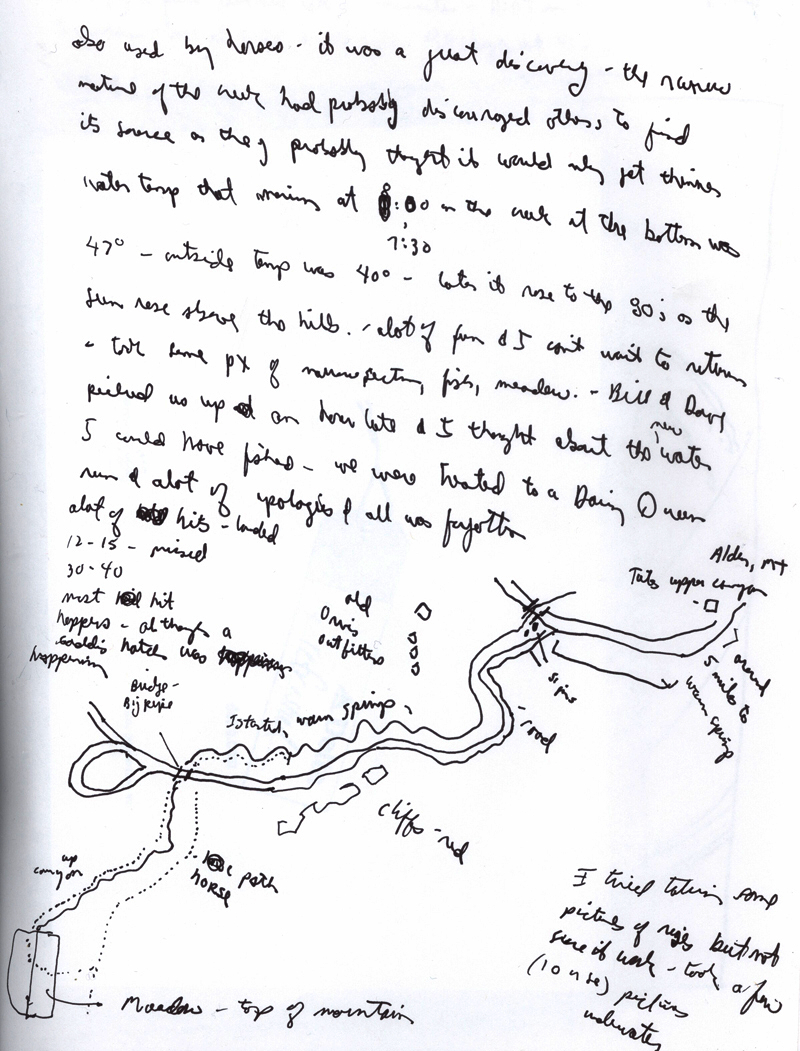 also used by horses - it was a great discovery - the narrow
nature of the creek had probably discouraged others to find
its source as they probably thought it would only get thinner
water temp that morning at 8:00 in the creek at the bottom was
7:30
47° - outside temp was 40° - later it rose to the 90's as the
sun rose above the hills. - alot of fun & I can't wait to return
- took some px of narrow section, fish, meadow. - Bill & Dave
picked us up an hour late & I thought about the new water
I could have fished - we were treated to a Dairy Queen
run & alot of apologies & all was forgotten
alot of hits - landed
12-15 - missed
30-40
most hit
hoppers - although a
caddis hatch was
happening
old
Orvis
outfitters
Alder, MT
upper canyon
around
5 miles to
warm spring
signs
road
Bridge -
Big Ripple
I started, warm springs,
cliffs - red
up
canyon
path
horse
Meadow - top of mountain
I tried taking some
pictures of rigs but not
sure it work - took a few
(10 or so) pictures
underwater